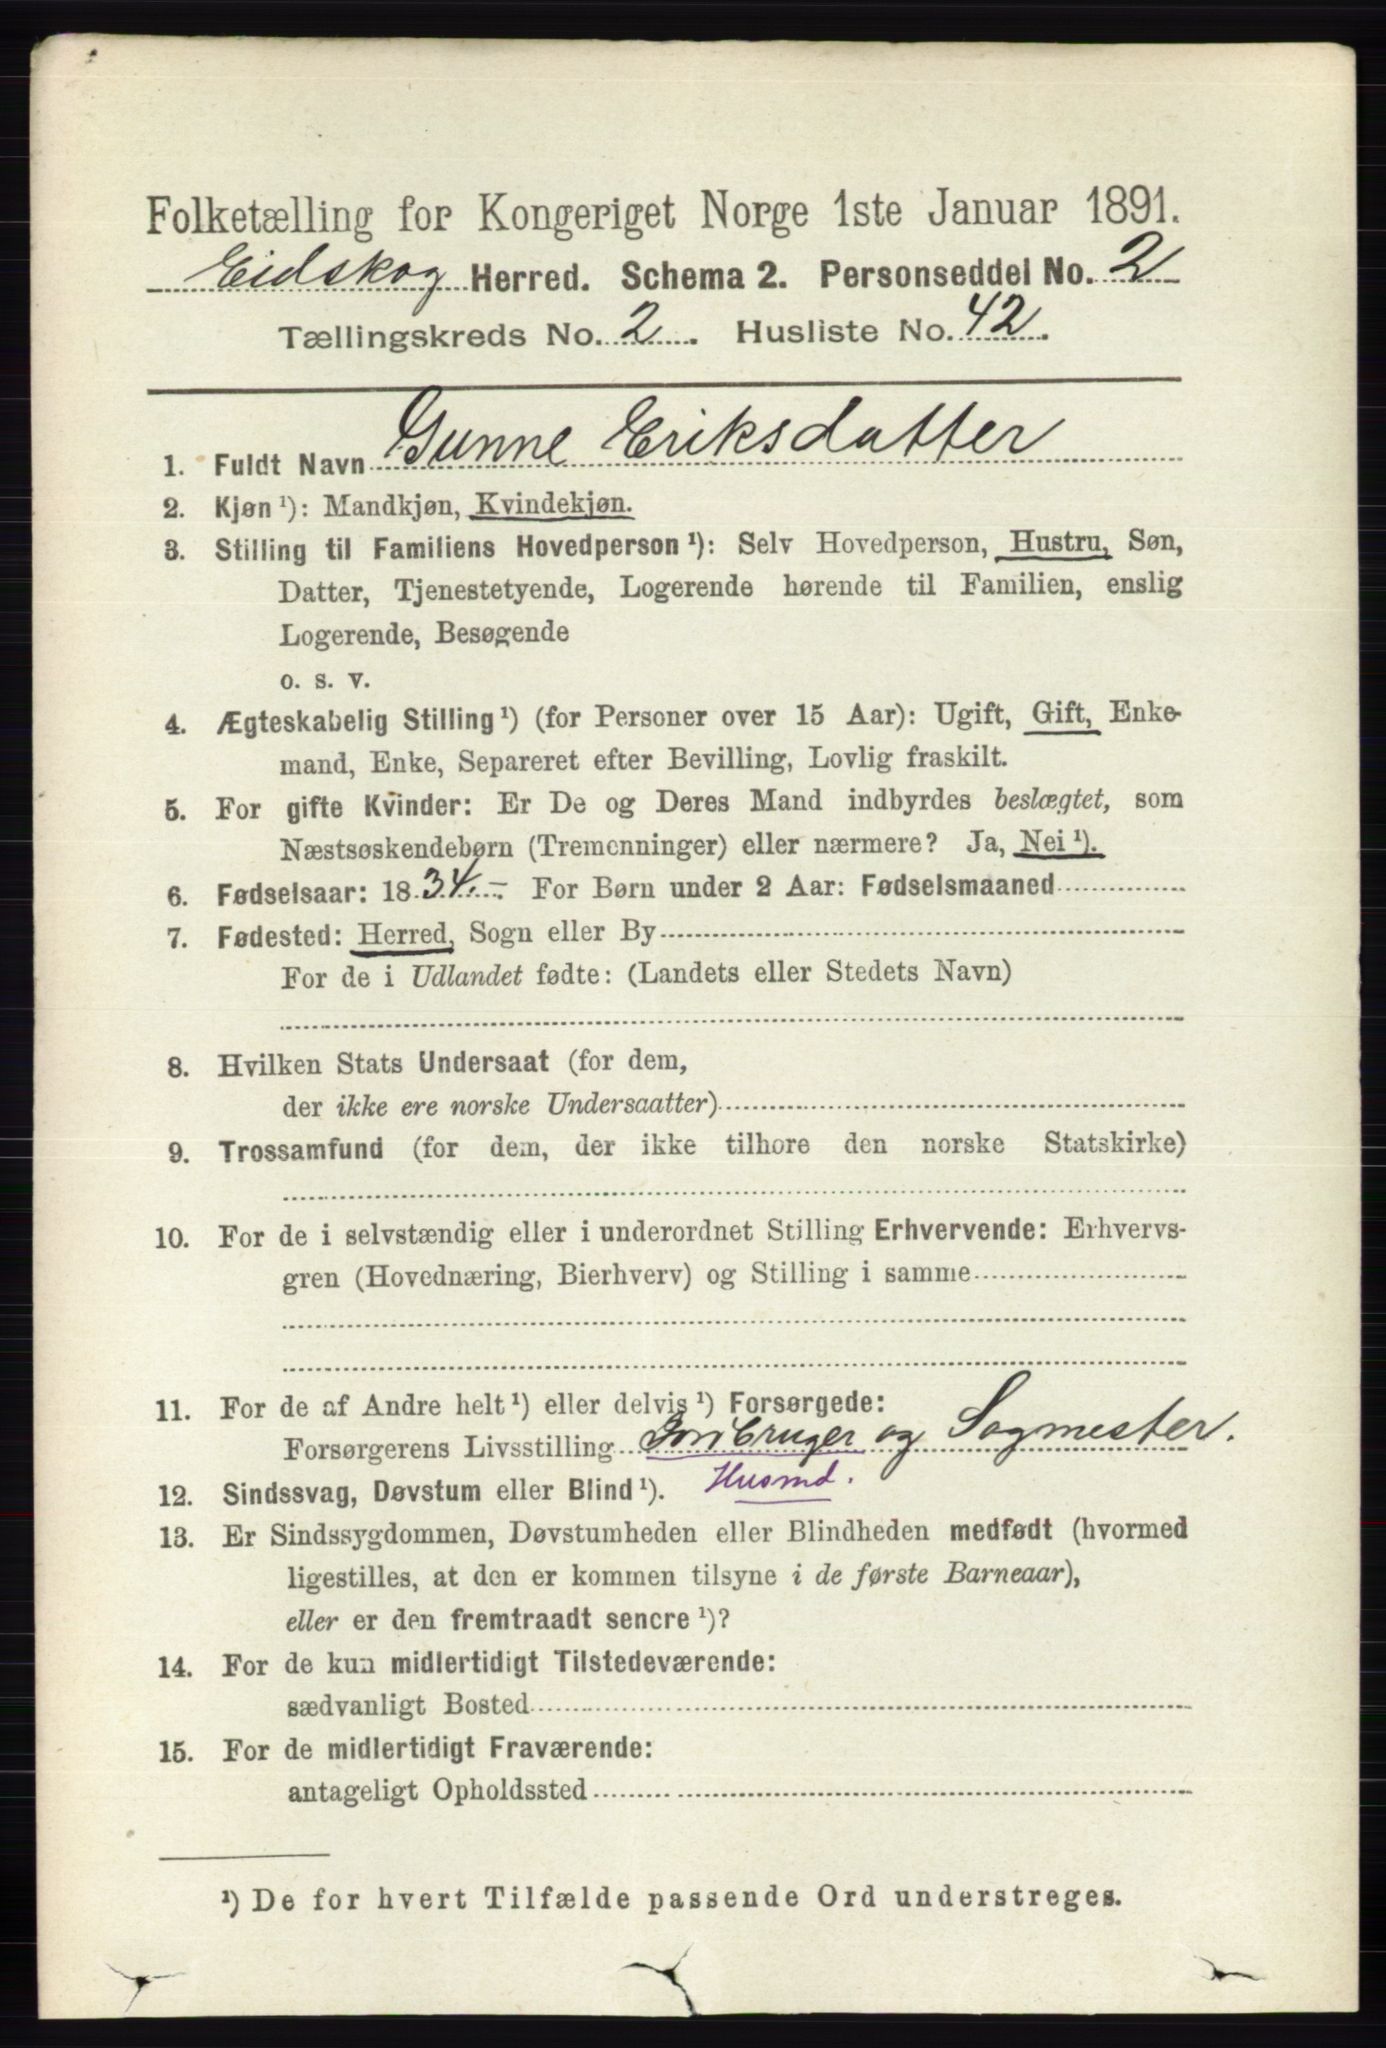 Folketælling for Kongeriget Norge 1ste Januar 1891.
Eidskog Herred. Schema 2. Personseddel No. 2
Tællingskreds No. 2. Husliste No. 42.
1. Fuldt Navn Gunne Eriksdatter
2. Kjøn ¹): Mandkjøn, Kvindekjøn.
3. Stilling til Familiens Hovedperson ¹): Selv Hovedperson, Hustru, Søn,
Datter, Tjenestetyende, Logerende hørende til Familien, enslig
Logerende, Besøgende
o. s. v.
4. Ægteskabelig Stilling ¹) (for Personer over 15 Aar): Ugift, Gift, Enke-
mand, Enke, Separeret efter Bevilling, Lovlig fraskilt.
5. For gifte Kvinder: Er De og Deres Mand indbyrdes beslægtet, som
Næstsøskendebørn (Tremenninger) eller nærmere? Ja, Nei ¹).
6. Fødselsaar: 1834. – For Børn under 2 Aar: Fødselsmaaned
7. Fødested: Herred, Sogn eller By
For de i Udlandet fødte: (Landets eller Stedets Navn)
8. Hvilken Stats Undersaat (for dem,
der ikke ere norske Undersaatter)
9. Trossamfund (for dem, der ikke tilhøre den norske Statskirke)
10. For de i selvstændig eller i underordnet Stilling Erhvervende: Erhvervs-
gren (Hovednæring, Bierhverv) og Stilling i samme
11. For de af Andre helt ¹) eller delvis ¹) Forsørgede:
Forsørgerens Livsstilling Jorbruger og Sagmester.
12. Sindssvag, Døvstum eller Blind ¹). Husmd.
13. Er Sindssygdommen, Døvstumheden eller Blindheden medfødt (hvormed
ligestilles, at den er kommen tilsyne i de første Barneaar),
eller er den fremtraadt senere ¹)?
14. For de kun midlertidigt Tilstedeværende:
sædvanligt Bosted
15. For de midlertidigt Fraværende:
antageligt Opholdssted
¹) De for hvert Tilfælde passende Ord understreges.